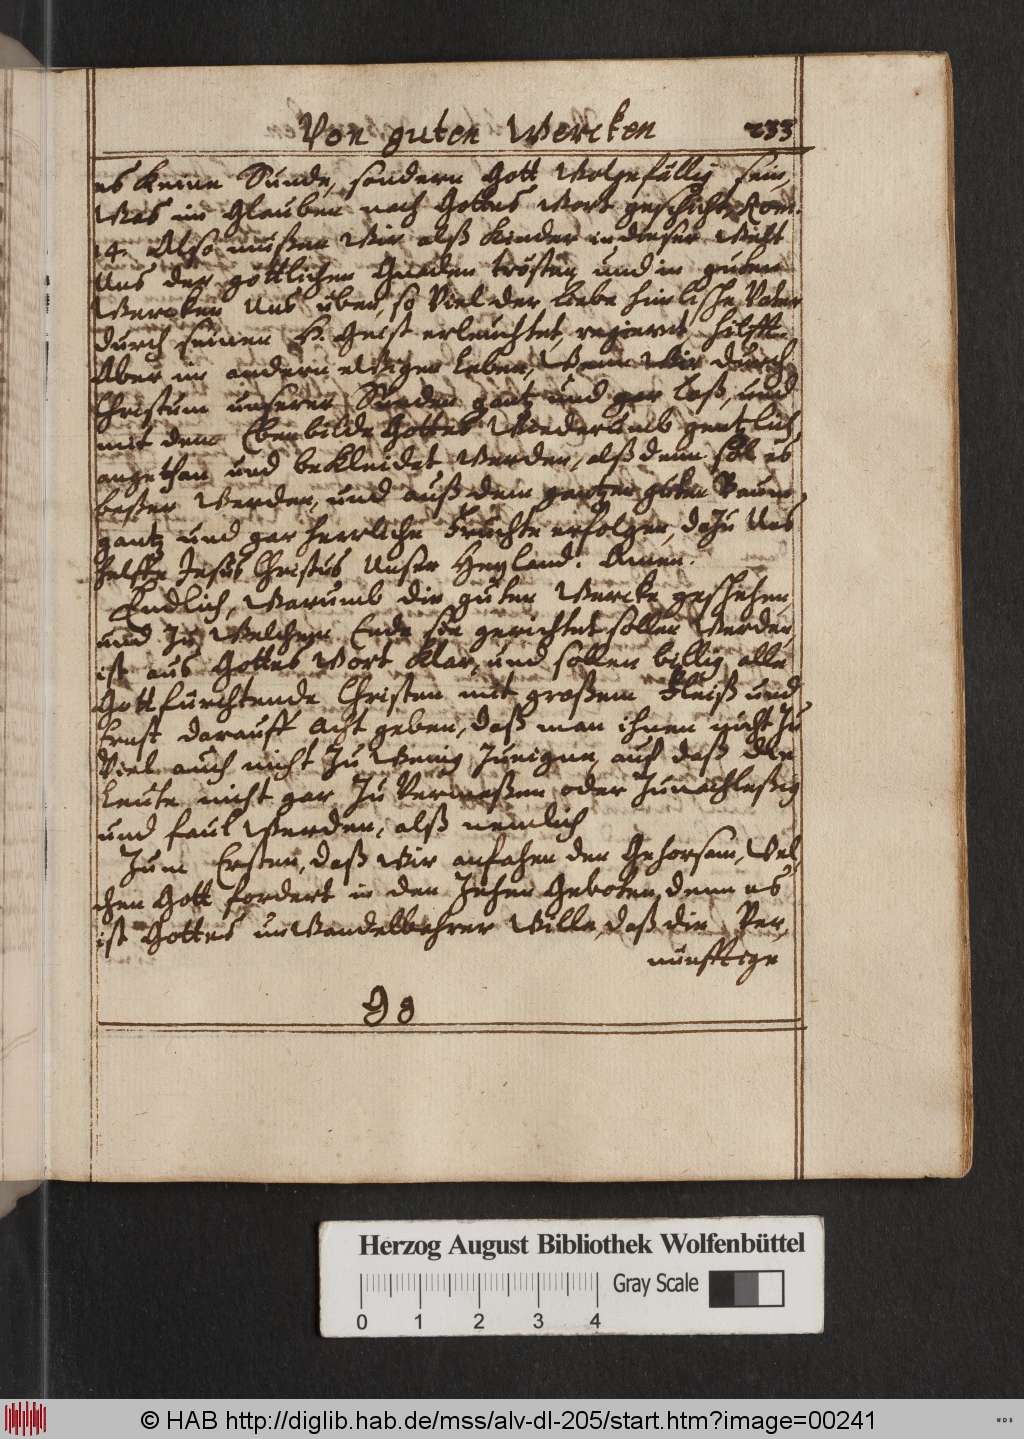 Von guten Wercken 233
es keine Sünde, sondern Gott Wolgefällig sein,
Was im Glauben nach Gottes Wort geschicht, Rom.
14. Also müßen Wir alß Kinder in dieser Welt
Uns der göttlichen Gnaden trösten, und in guten
Wercken Uns üben, so Viel der liebe himlische Vater
durch seinen H. Geist erleuchtet, regieret, hilfft.
Aber im andern ewigen Leben, Wenn Wir durch
Christum unserer Sünden gantz und gar loß, und
mit dem Ebenbilde Gottes Wiederumb gentzlich
angethan und bekleidet Werden, alß denn sol es
beßer Werden, und auß dem gantzen guten Baum
gantz und gar herrliche Früchte erfolgen, dazu Uns
helffe Jesus Christus Unser Heyland. Amen.
Endlich, Warumb die guten Wercke geschehen,
und zu Welchem Ende sie gerichtet sollen Werden,
ist aus Gottes Wort klar, und sollen billig alle
Gottfürchtende Christen mit großem Fleiß und
Ernst darauff Acht geben, daß man ihnen nicht zu
Viel auch nicht zu Wenig zueigne, auf daß die
Leute nicht gar zu Vermeßen oder zu nachleßig
und faul Werden, alß nemlich
Zum Ersten, daß Wir anfahen den Gehorsam, Wel,
chen Gott fordert in den Zehen Geboten, denn es
ist Gottes unWandelbahrer Wille, daß die Ver,
nünfftige
Gg
Herzog August Bibliothek Wolfenbüttel
Gray Scale
0 1 2 3 4
© HAB http://diglib.hab.de/mss/alv-dl-205/start.htm?image=00241